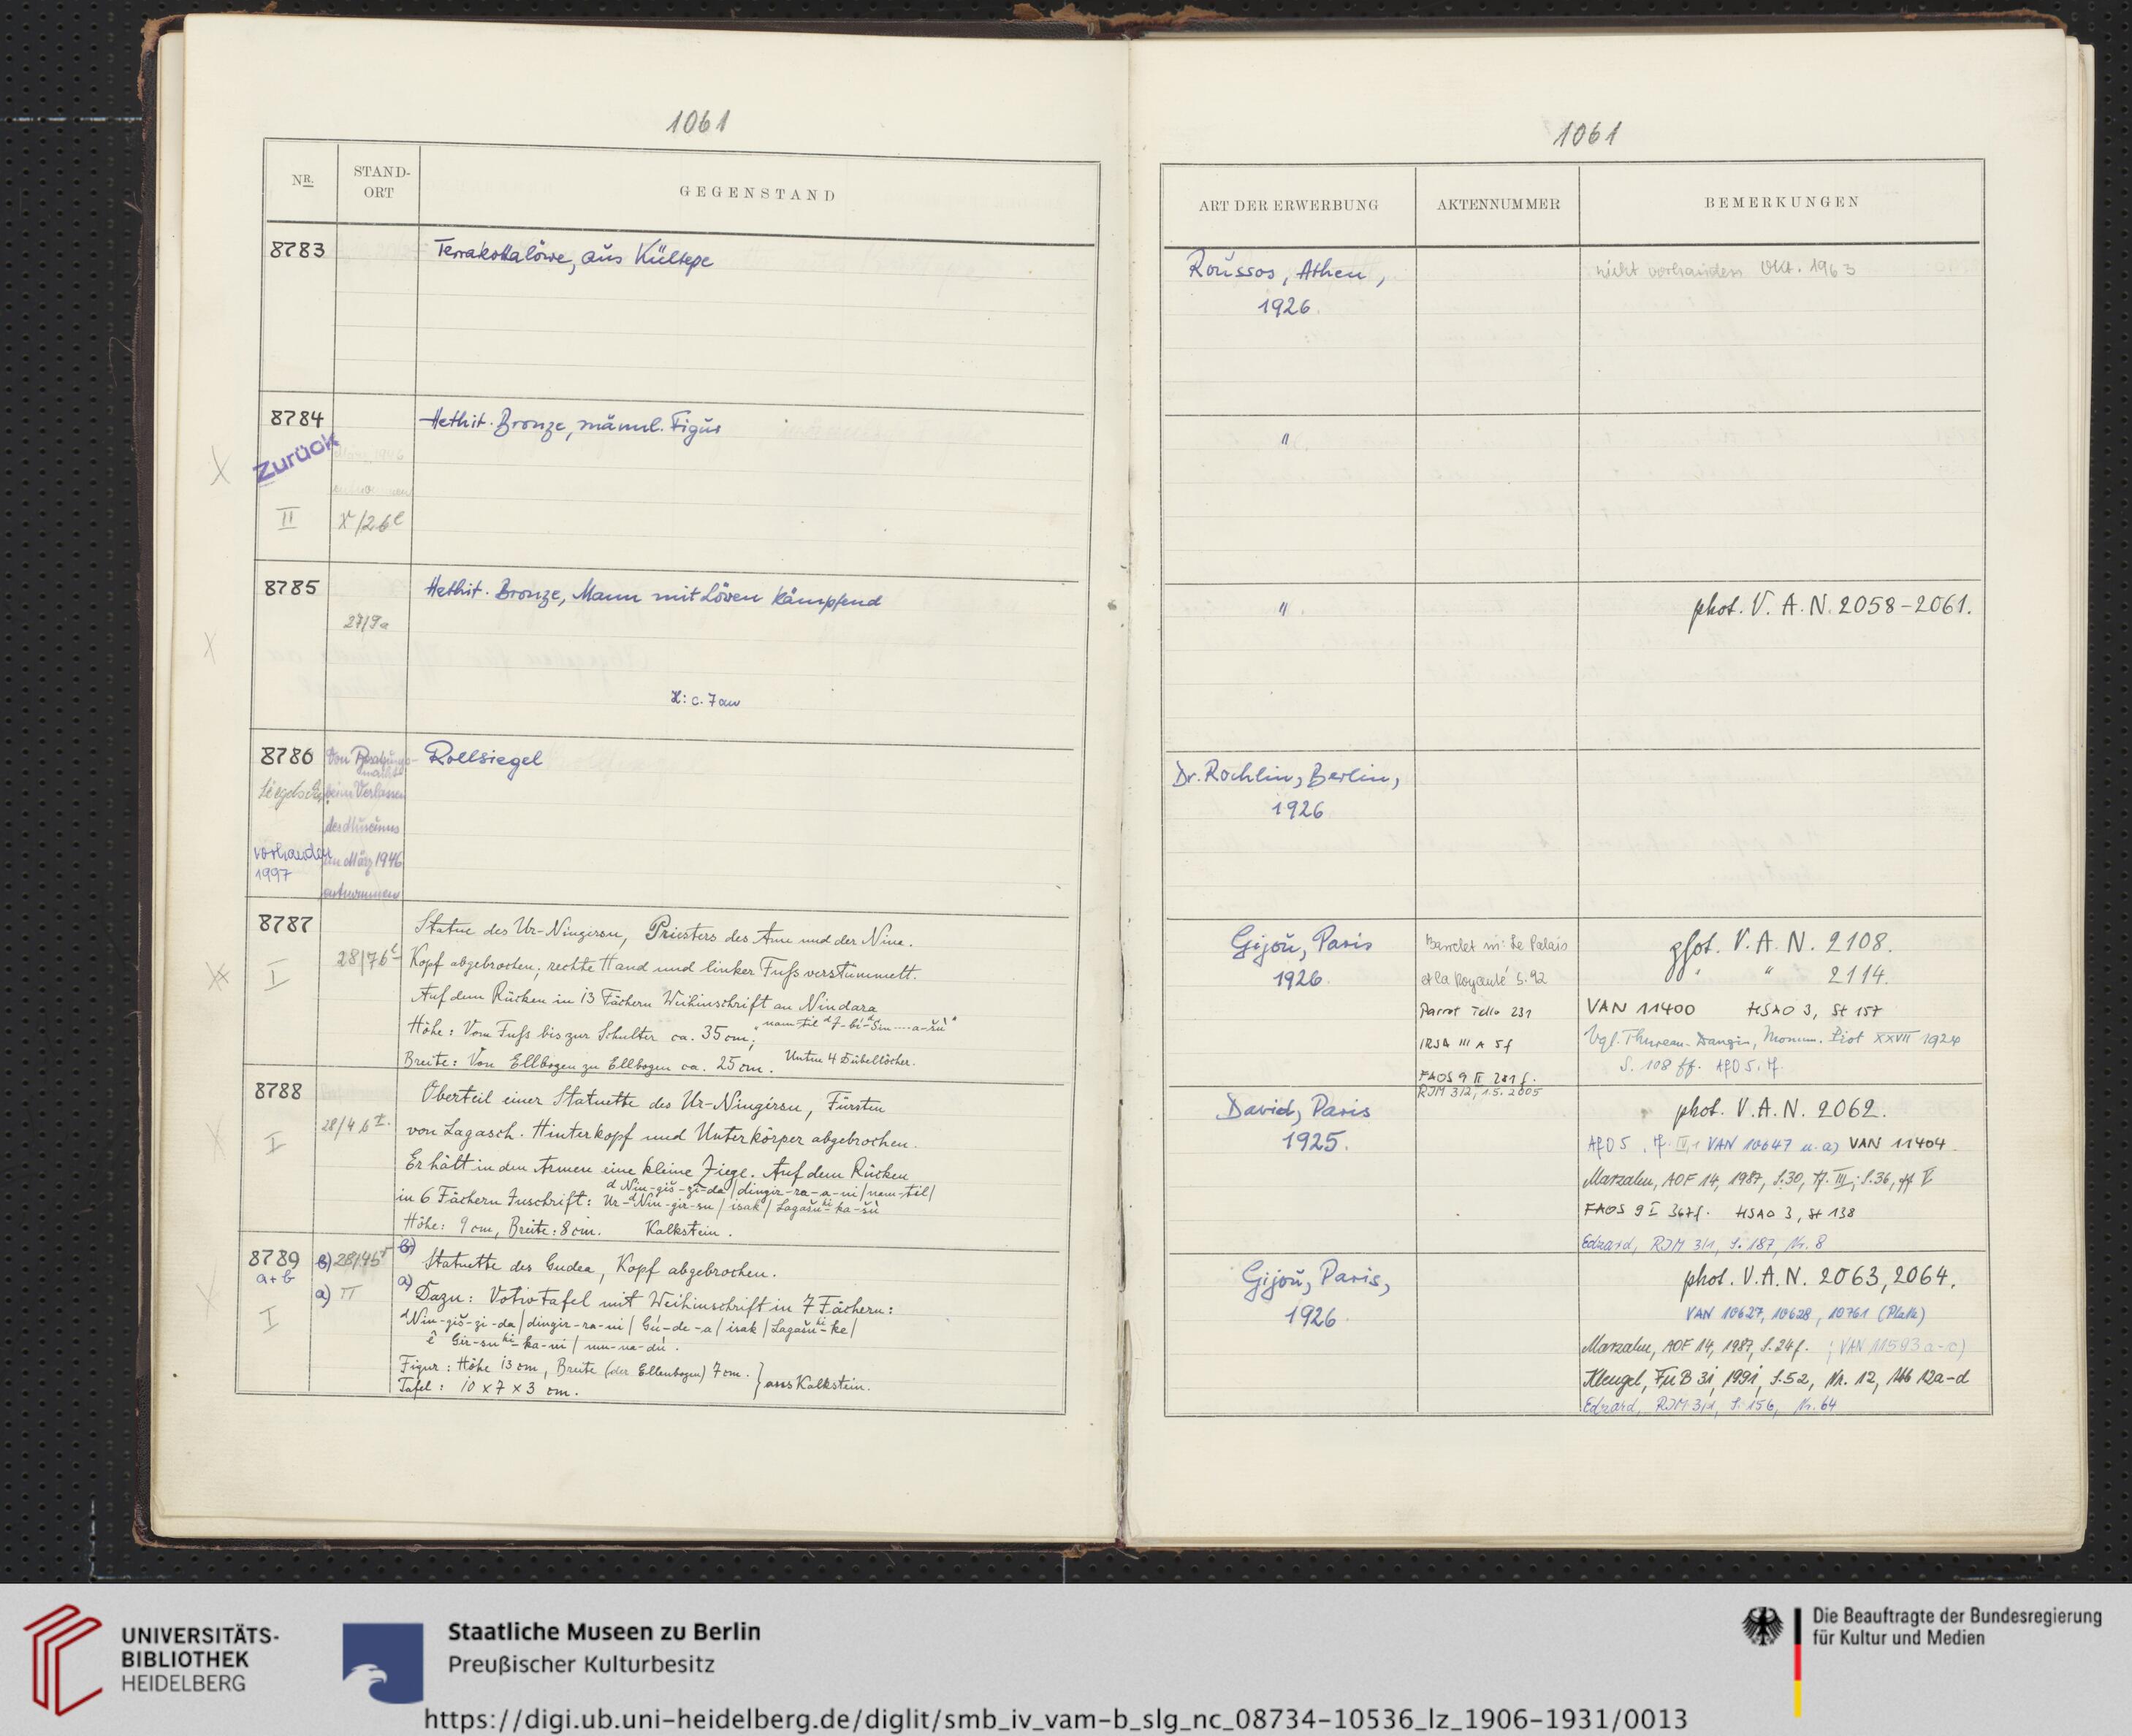 1061
NR.
STAND-
ORT
GEGENSTAND
8783
Terrakottalöwe, aus Kültepe
8784
Zurück
II
X/26e
Hethit. Bronze, männl. Figur
8785
27/9a
Hethit. Bronze, Mann mit Löwen kämpfend
H: c. 7 cm
8786
Rollsiegel
beim Verlassen
des Museums
im März 1946
entnommen
vorhanden
1997
8787
I
Statue des Ur-Ningirsu, Priesters des Anu und der Nina.
Kopf abgebrochen; rechte Hand und linker Fuß verstümmelt.
Auf dem Rücken in 13 Fächern Weihinschrift an Nindara
Höhe: Vom Fuß bis zur Schulter ca. 35 cm;
Breite: Von Ellbogen zu Ellbogen ca. 25 cm. Unten 4 Dübellöcher.
8788
I
Oberteil einer Statuette des Ur-Ningirsu, Fürsten
von Lagasch. Hinterkopf und Unterkörper abgebrochen.
Er hält in den Armen eine kleine Ziege. Auf dem Rücken
dNin-giš-zi-da | dingir-ra-a-ni | nam-til |
in 6 Fächern Inschrift: Ur-dNin-gir-su | isak | Lagašuki-ka-šù
Höhe: 9 cm, Breite: 8 cm. Kalkstein.
8789
a + b
I
b) 28/45
a) II
b) Statuette des Gudea, Kopf abgebrochen.
a) Dazu: Votivtafel mit Weihinschrift in 7 Fächern:
dNin-giš-zi-da | dingir-ra-ni | Gú-de-a | isak | Lagašuki-ke |
ê Gir-suki-ka-ni | mu-na-dú.
Figur: Höhe 13 cm, Breite (der Ellenbogen) 7 cm.
Tafel: 10 x 7 x 3 cm. } aus Kalkstein.
1061
ART DER ERWERBUNG
AKTENNUMMER
BEMERKUNGEN
Roussos, Athen,
1926.
nicht vorhanden Okt. 1963
"
"
phot. V. A. N. 2058-2061.
Dr. Rochlin, Berlin,
1926
Gijou, Paris
1926.
Barrelet in: Le Palais
et la Royauté S. 92
Parrot Tello 231
IRSA III A 5f
FAOS 9 II 281 f.
RIM 3/2, 1.5.2005
phot. V. A. N. 2108.
" " 2114.
VAN 11400 HSAO 3, St 157
Vgl. Thureau-Dangin, Monum. Piot XXVII 1924
S. 108 ff. AfO 5.
David, Paris
1925.
phot. V. A. N. 2062.
AfO 5, VAN 10647 u. a) VAN 11404
Marzahn, AOF 14, 1987, S. 30, Tf. III; S. 36, Tf V
FAOS 9 I 367f. HSAO 3, St 138
Edzard, RIM 3/1, S. 187, Nr. 8
Gijou, Paris,
1926
phot. V. A. N. 2063, 2064.
VAN 10627, 10628, 10761 (Platte)
Marzahn, AOF 14, 1987, S. 24 f. ; VAN 11593 a-c)
Klengel, FuB 31, 1991, S. 52, Nr. 12, Abb 12a-d
Edzard, RIM 3/1, S. 156, Nr. 64
UNIVERSITÄTS-
BIBLIOTHEK
HEIDELBERG
Staatliche Museen zu Berlin
Preußischer Kulturbesitz
Die Beauftragte der Bundesregierung
für Kultur und Medien
https://digi.ub.uni-heidelberg.de/diglit/smb_iv_vam-b_slg_nc_08734-10536_lz_1906-1931/0013